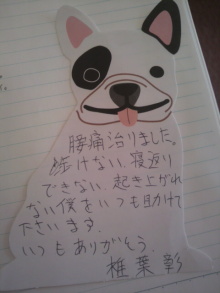 腰痛治りました。
歩けない、寝返り
できない、起き上がれ
ない僕をいつも助けて
下さいます。
いつもありがそう。
椎葉彰